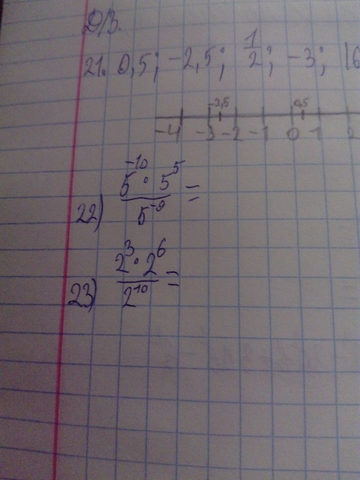 Д/З.
21. 0,5; -2,5; 1/2; -3; 16
-2,5 0,5
-4 -3 -2 -1 0 1 2
22) 5^-10 · 5^5 / 5^-9 =
23) 2^3 · 2^6 / 2^10 =